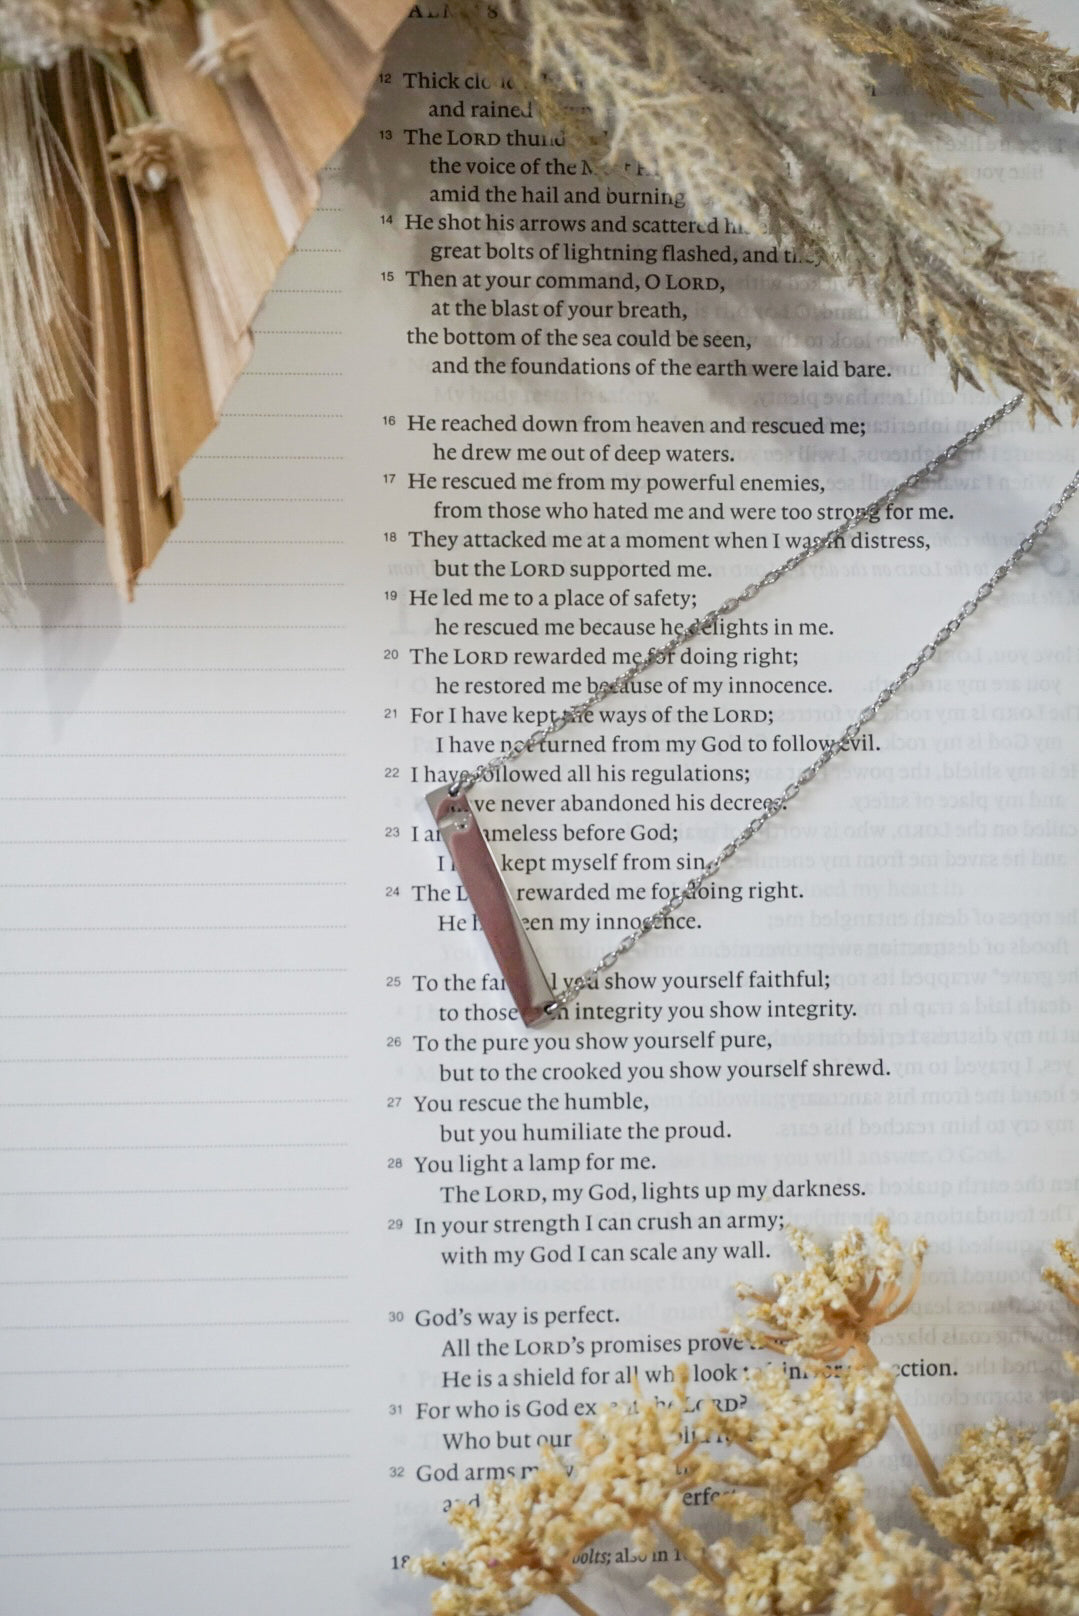 12 Thick
and rained
13 The LORD
the voice of the
amid the hail and burning
14 He shot his arrows and scattered
great bolts of lightning flashed, and
15 Then at your command, O LORD,
at the blast of your breath,
the bottom of the sea could be seen,
and the foundations of the earth were laid bare.
16 He reached down from heaven and rescued me;
he drew me out of deep waters.
17 He rescued me from my powerful enemies,
from those who hated me and were too strong for me.
18 They attacked me at a moment when I was in distress,
but the LORD supported me.
19 He led me to a place of safety;
he rescued me because he delights in me.
20 The LORD rewarded me for doing right;
he restored me because of my innocence.
21 For I have kept the ways of the LORD;
I have not turned from my God to follow evil.
22 I have followed all his regulations;
never abandoned his decrees.
23 I before God;
I kept myself from sin.
24 The rewarded me for doing right.
He my innocence.
25 To the you show yourself faithful;
to those integrity you show integrity.
26 To the pure you show yourself pure,
but to the crooked you show yourself shrewd.
27 You rescue the humble,
but you humiliate the proud.
28 You light a lamp for me.
The LORD, my God, lights up my darkness.
29 In your strength I can crush an army;
with my God I can scale any wall.
30 God's way is perfect.
All the LORD's promises prove
He is a shield for all look
31 For who is God LORD?
Who but our
32 God arms
also in